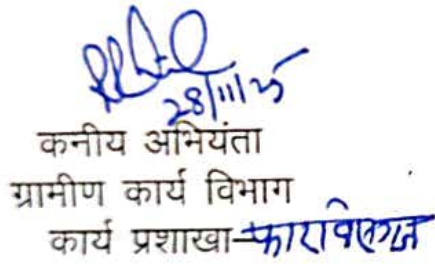 28/11/25
कनीय अभियंता
ग्रामीण कार्य विभाग
कार्य प्रशाखा-फारबिसगंज